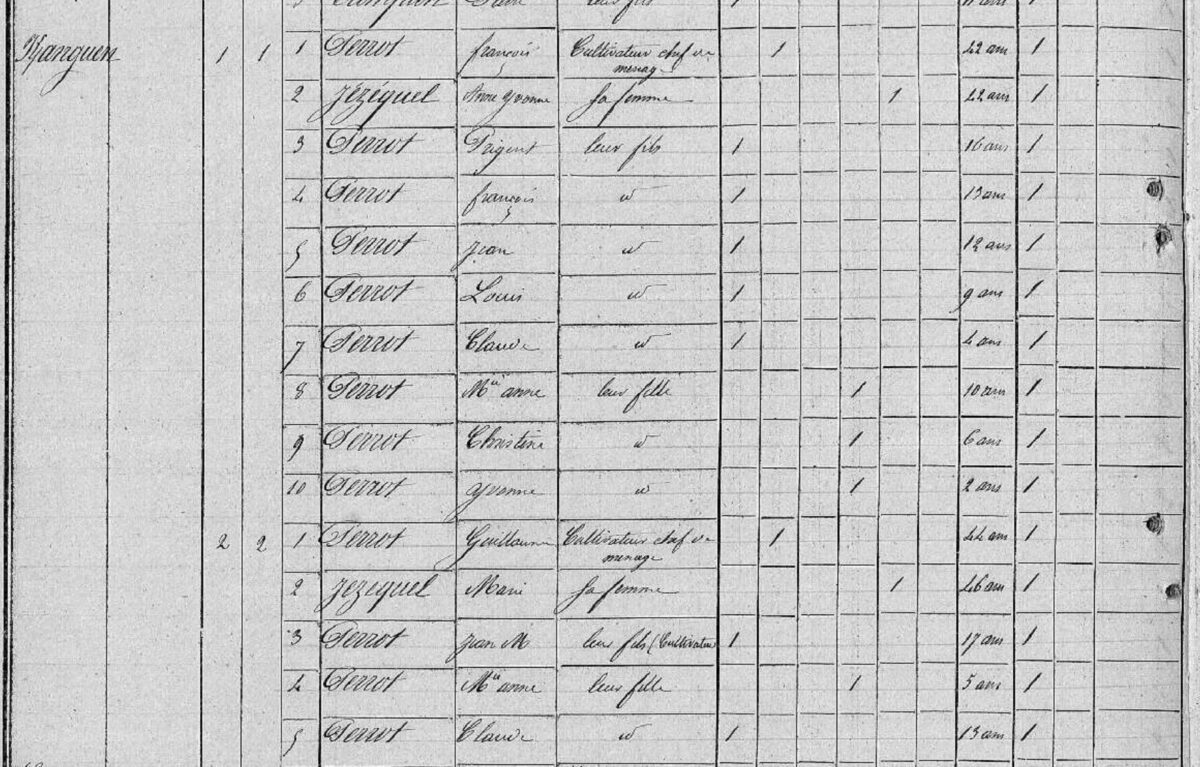 leurs fils 1 11 ans 1
1 1 1 Perrot françois Cultivateur chef de 1 42 ans 1
menage
2 Jézéquel Anne yvonne sa femme 1 42 ans 1
3 Perrot Prigent leur fils 1 16 ans 1
4 Perrot françois id 1 13 ans 1
5 Perrot jean id 1 12 ans 1
6 Perrot Louis id 1 9 ans 1
7 Perrot Claude id 1 4 ans 1
8 Perrot Mie anne leur fille 1 10 ans 1
9 Perrot Christine id 1 6 ans 1
10 Perrot yvonne id 1 2 ans 1
2 2 1 Perrot Guillaume Cultivateur chef de 1 44 ans 1
menage
2 Jezequel Marie sa femme 1 46 ans 1
3 Perrot jean M leur fils (Cultivateur 1 17 ans 1
4 Perrot Mie anne leur fille 1 5 ans 1
5 Perrot Claude id 1 13 ans 1